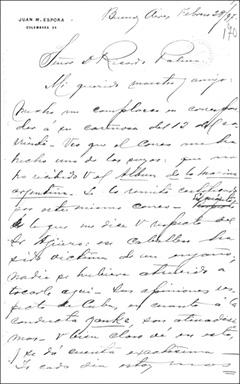 JUAN M. ESPORA
COLOMBRES 86
Buenos Aires Febrero 28/97.
170
Señor D Ricardo Palma.
Mi querido maestro y amigo:
Mucho me complazco en correspon
der a su cariñosa del 12 de
Veo que el Correo me ha
hecho una de las suyas: que no
ha recibido V el Album de la marina
argentina. Se lo remito certificado
por este mismo correo.
lo que me dice V respecto del
Sr : ese caballero ha
sido víctima de un engaño,
nadie se hubiera atrevido a
tocarlo aquí. Sus opiniones res
pecto de Cuba, en cuanto á la
conducta yankee son atenuadas
mas. V bien claro de en esto,
y se dá cuenta exactísima.
cada dia estoy mas